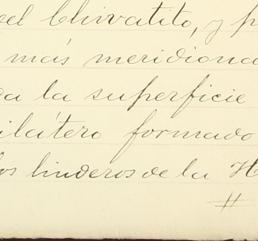 el Chivatito, y p
más meridiona
a la superficie
ilátero formado
los linderos de la H
"